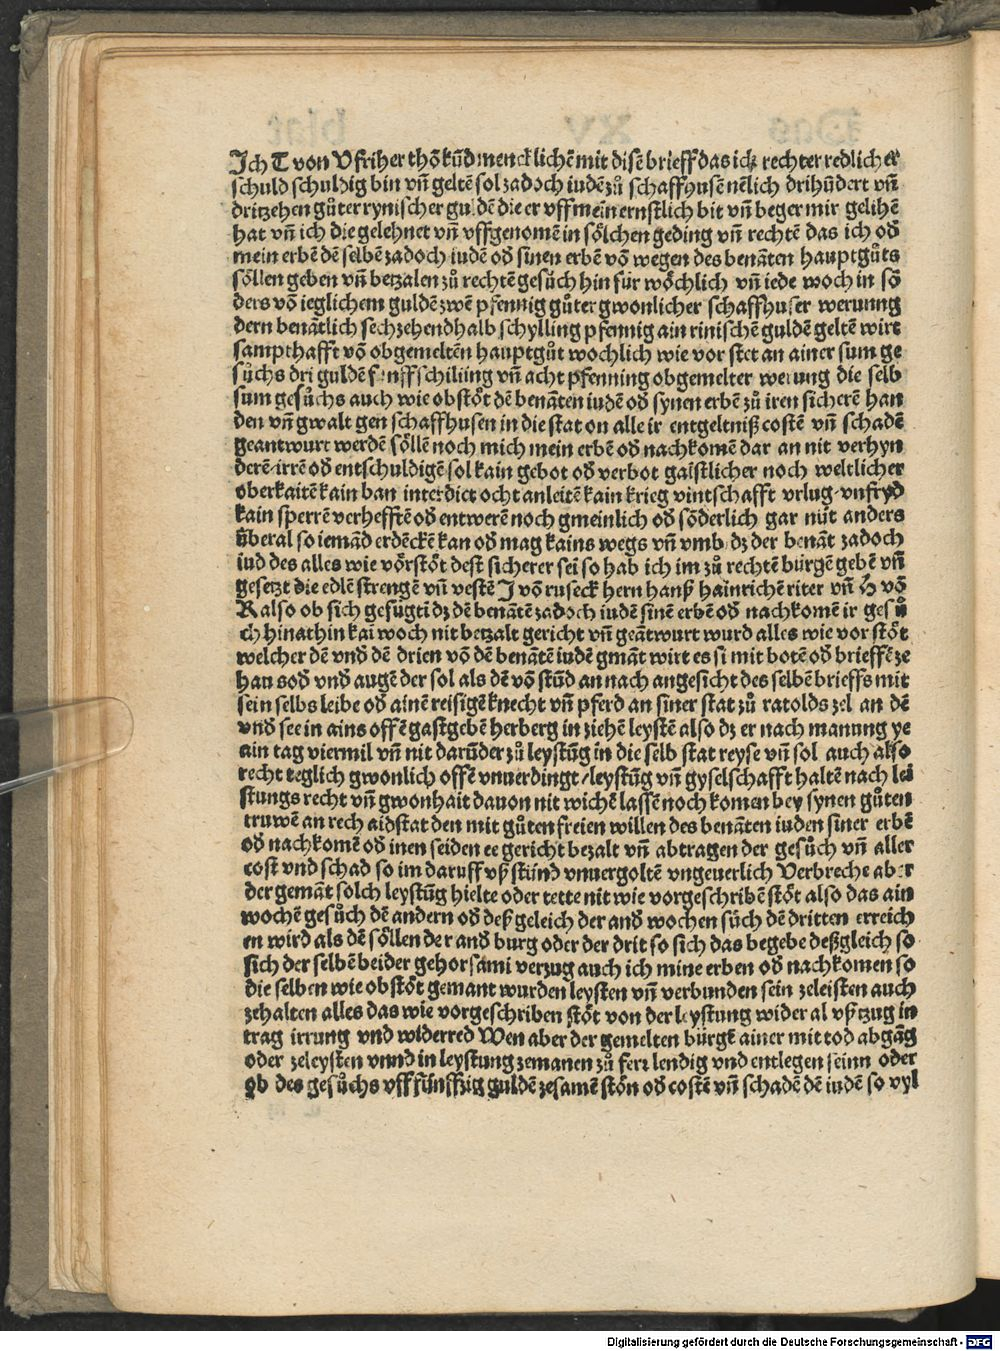 Ich T von V friher thō kūd mencklichē mit disē brieff das ich rechter redlicher
schuld schuldig bin vñ geltē sol zadoch iudē zů schaffhusē nēlich drihūdert vñ
dritzehen gůter rynischer guldē die er vff mein ernstlich bit vñ beger mir gelihē
hat vñ ich die gelehnet vñ vffgenomē in sölchen geding vñ rechtē das ich od
mein erbē dē selbē zadoch iudē od sinen erbē vō wegen des benātē hauptgůts
söllen geben vñ betzalen zů rechtē gesůch hin für wöchlich vñ iede woch in sō
ders vō ieglichem guldē zwē pfennig gůter gwonlicher schaffhuser werunng
dern benātlich sechzehendhalb schylling pfennig ain rinischē guldē geltē wirt
sampthafft vō obgemeltēn hauptgůt wochlich wie vor stet an ainer sum ge
sůchs dri guldē funffschilling vñ acht pfenning obgemelter werung die selb
sum gesůchs auch wie obstöt dē benātē iudē od synen erbē zů iren sicherē han
den vñ gwalt gen schaffhusen in die stat on alle ir entgeltniß costē vñ schadē
geantwurt werdē söllē noch mich mein erbē od nachkomē dar an nit verhyn
derē irrē od entschuldigē sol kain gebot od verbot gaistlicher noch weltlicher
oberkaitē kain ban interdict ocht anleitē kain krieg vintschafft vrlug vnfryd
kain sperrē verhefftē od entwerē noch gmeinlich od sōderlich gar nüt anders
überal so iemād erdēckē kan od mag kains wegs vñ vmb dz der benāt zadoch
iud des alles wie vorstöt dest sicherer sei so hab ich im zů rechtē bürgē gebē vñ
gesetzt die edlē strengē vñ vestē I vō ruseck hern hanß hainrichē riter vñ H vō
R also ob sich gefügti dz dē benātē zadoch iudē sinē erbē od nachkomē ir gesů
ch hinathin kai woch nit betzalt gericht vñ geātwurt wurd alles wie vor stöt
welcher dē vnd dē drien vō dē benātē iudē gmāt wirt es si mit botē od brieffē ze
haus od vnd augē der sol als dē vō stūd an nach angesicht des selbē brieffs mit
sein selbs leibe od ainē reisigē knecht vñ pferd an siner stat zů ratolds zel an dē
vnd see in ains offē gastgebē herberg in ziehē leystē also dz er nach manung ye
ain tag viermil vñ nit darūder zů leystūg in die selb stat reyse vñ sol auch also
recht teglich gwonlich offē vnuerdingt/leystūg vñ gyselschafft haltē nach lei
stungs recht vñ gwonhait dauon nit wichē lassē noch komen bey synen gůten
truwē an rech aidstat den mit gůten freien willen des benātē iuden siner erbē
od nachkomē od inen seiden ee gericht bezalt vñ abtragen der gesůch vñ aller
cost vnd schad so im daruff vß stünd vnuergoltē vngeuerlich Verbreche aber
der gemāt solch leystūg hielte oder tette nit wie vorgeschribē stöt also das ain
wochē gesůch dē andern od deß geleich der and wochen süch dē dritten erreich
en wird als dē söllen der and burg oder der drit so sich das begebe deßgleich so
sich der selbē beider gehorsami verzug auch ich mine erben od nachkomen so
die selben wie obstöt gemant wurden leysten vñ verbunden sein zeleisten auch
zehalten alles das wie vorgeschriben stöt von der leystung wider al vßtzug in
trag irrung vnd widerred Wen aber der gemelten bürgē ainer mit tod abgāg
oder zeleysten vnnd in leystung zemanen zů ferz lendig vnd entlegen seinn oder
ob des gesůchs vff fünffzig guldē zesamē stön od costē vñ schadē dē iudē so vyl
Digitalisierung gefördert durch die Deutsche Forschungsgemeinschaft - DFG